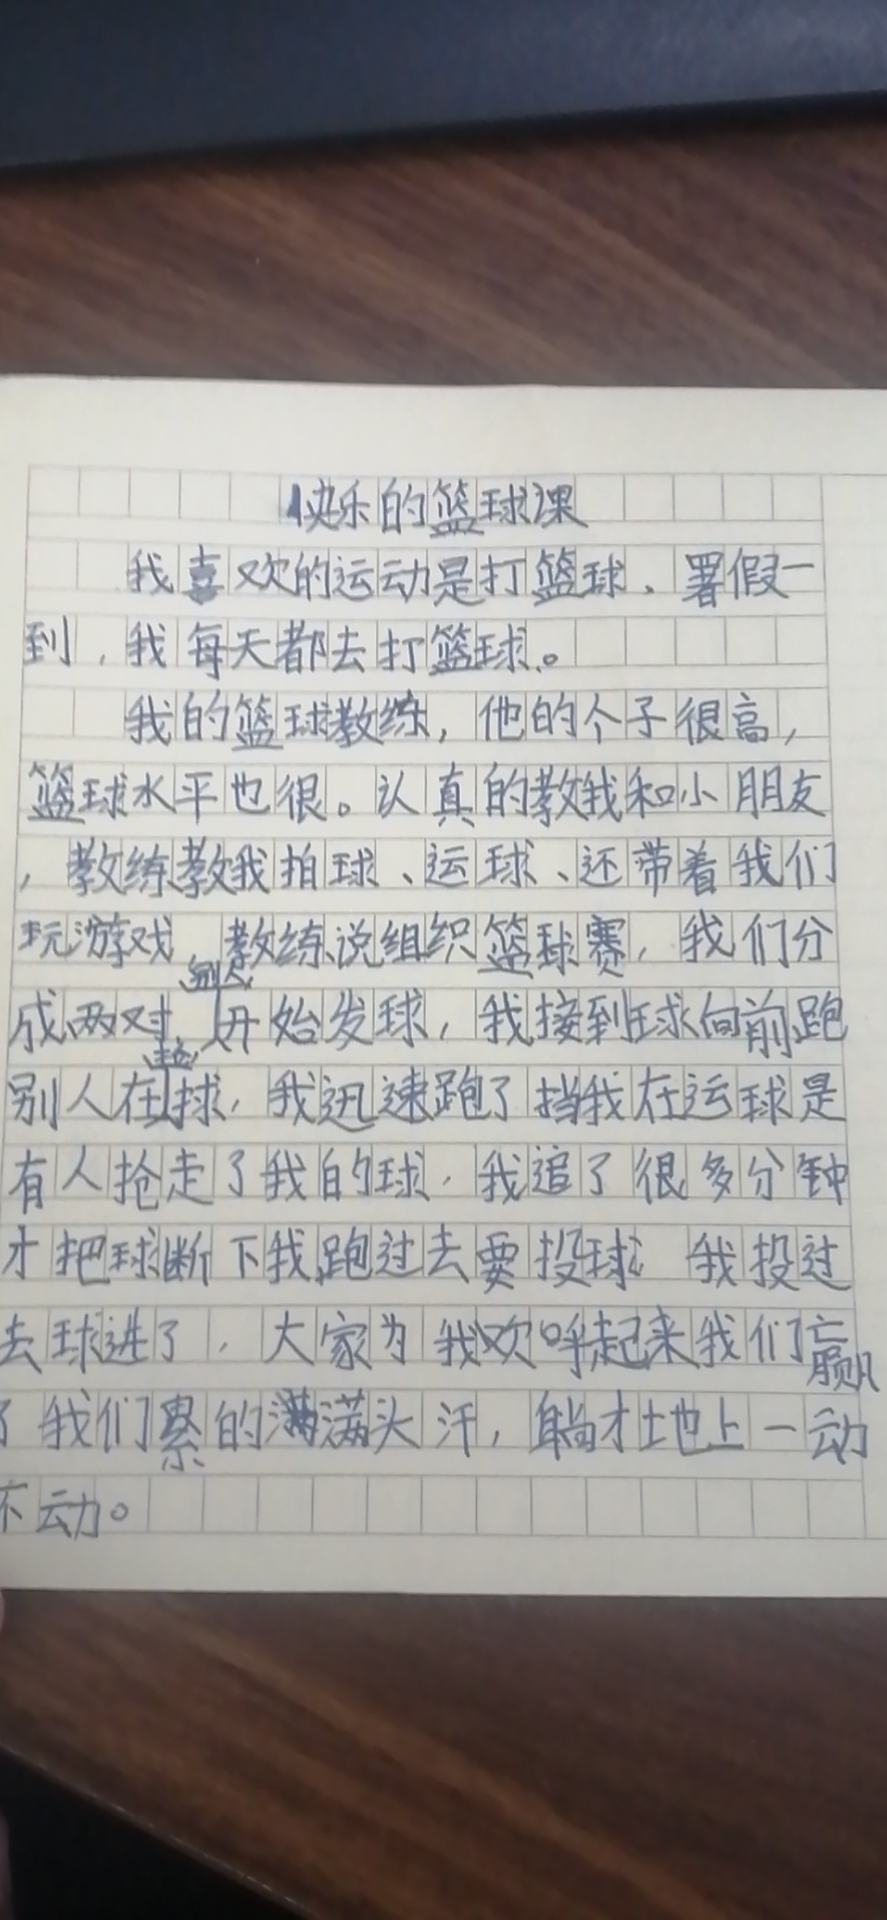 快乐的篮球课
我喜欢的运动是打篮球、署假一
到,我每天都去打篮球。
我的篮球教练,他的个子很高,
篮球水平也很。认真的教我和小朋友
,教练教我拍球、运球、还带着我们
玩游戏,教练说组织篮球赛,我们分
别人
成两对,开始发球,我接到球向前跑
追
别人在球,我迅速跑了挡我在运球是
有人抢走了我的球,我追了很多分钟
才把球断下我跑过去要投球 我投过
去球进了,大家为我欢呼起来我们赢
了我们累的满满头汗,躺才土地上一动
不动。